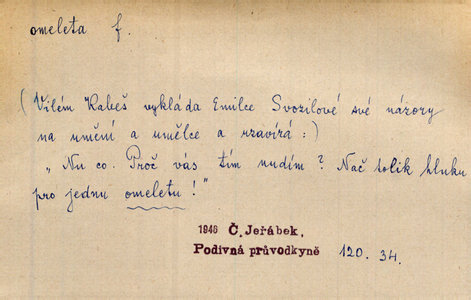 omeleta f.
(Vilém Kabeš vykládá Emilce Svozilové své názory
na umění a umělce a uzavírá:)
„Nu co. Proč vás tím nudím? Nač tolik hluku
pro jednu omeletu!"
1946 Č. Jeřábek,
Podivná průvodkyně 120. 34.